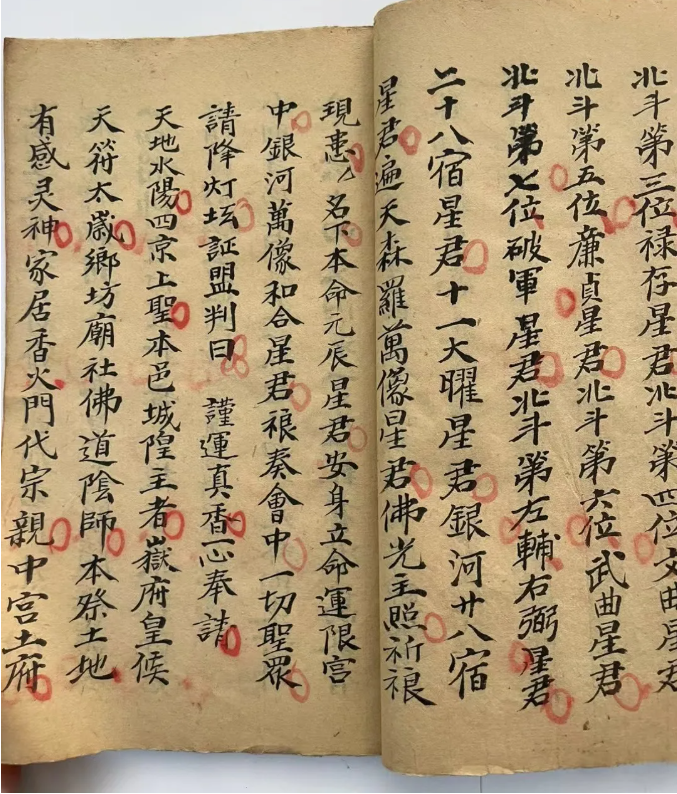 北斗第三位禄存星君北斗第四位文曲星君
北斗第五位廉貞星君北斗第六位武曲星君
北斗第七位破軍星君北斗第左輔右弼星君
二十八宿星君十一大曜星君銀河廿八宿
星君遍天森羅萬像星君佛光主照祈禳
現患 名下本命元辰星君安身立命運限宮
中銀河萬像和合星君禳奏會中一切聖眾
請降灯坛証盟判曰 謹運真香一心奉請
天地水陽四京上聖本邑城隍主者嶽府皇候
天符太歲鄉坊廟社佛道陰師本祭土地
有感灵神家居香火門代宗親中宮土府